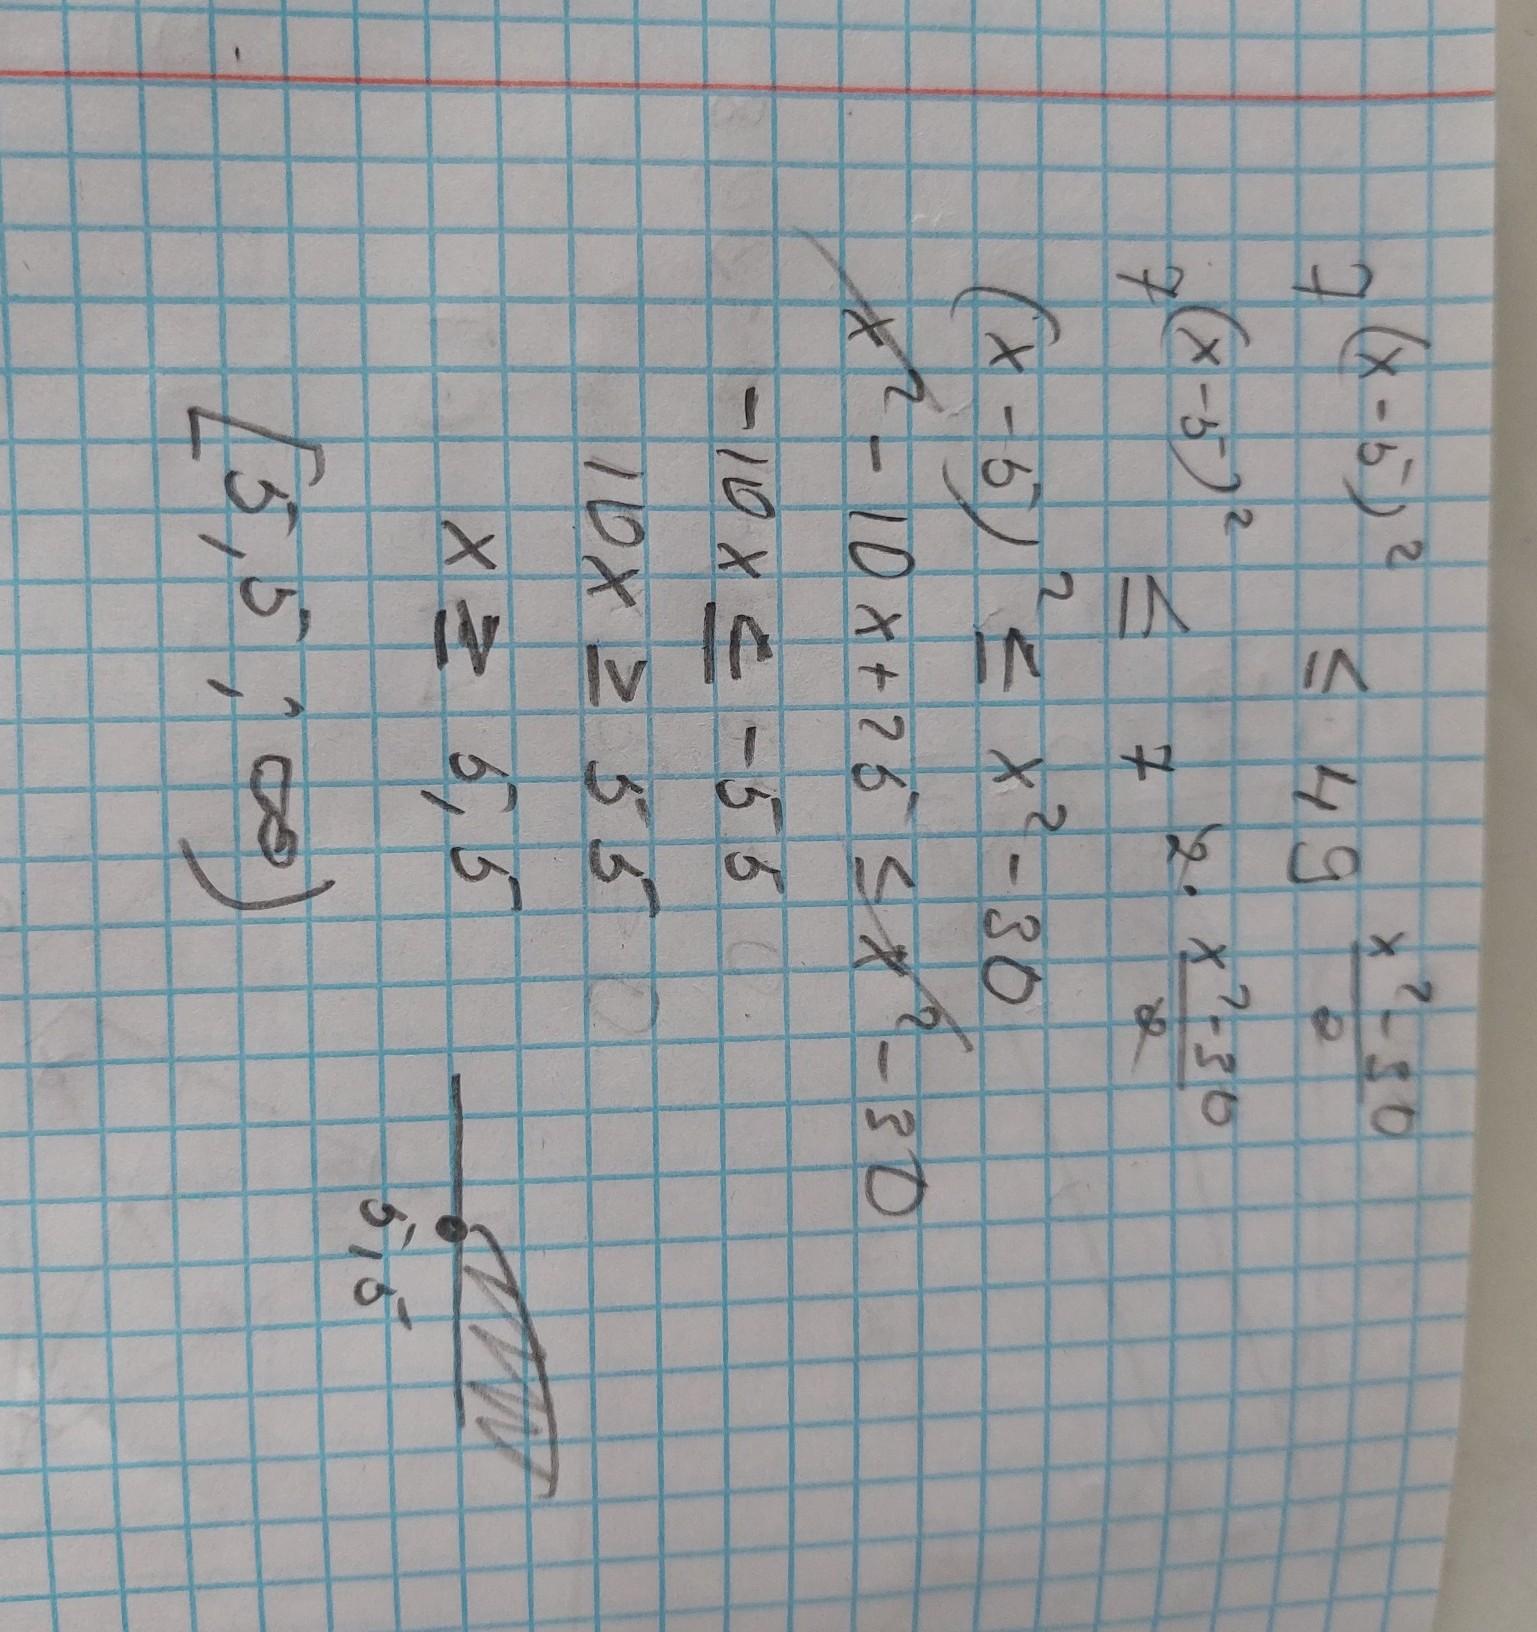 7^(x-5)^2 ≤ 49^(x^2-30)/2
7^(x-5)^2 ≤ 7^2·(x^2-30)/2
(x-5)^2 ≤ x^2-30
x^2-10x+25 ≤ x^2-30
-10x ≤ -55
10x ≥ 55
x ≥ 5,5
5,5
[5,5; ∞)